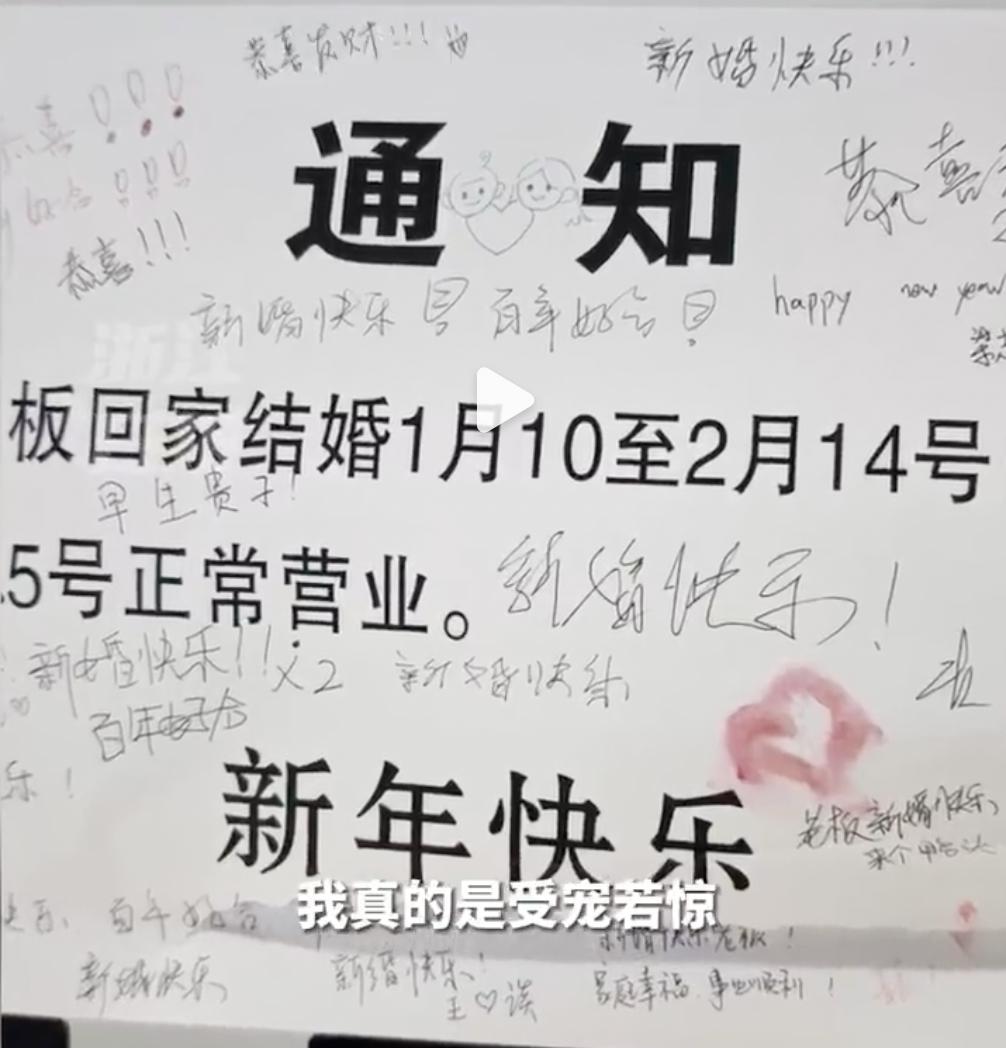 恭喜发财!!!
新婚快乐!!!
恭喜!!!
通知
恭喜
恭喜!!!
新婚快乐 百年好合
happy new year
浙江
板回家结婚1月10至2月14号
早生贵子!
5号正常营业。
新婚快乐!
新婚快乐!!x2
新婚快乐
百年好合
乐!
新年快乐
老板新婚快乐
我真的是受宠若惊
百年好合
新婚快乐老板!
新婚快乐
新婚快乐!
家庭幸福 事业顺利!